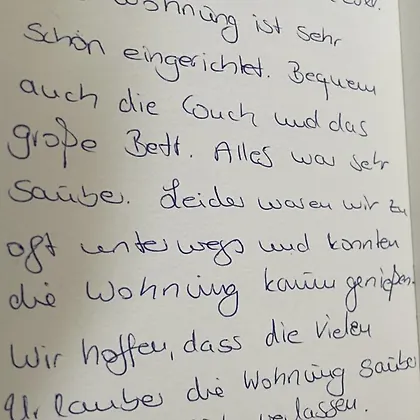 Wohnung ist sehr
schön eingerichtet. Bequem
auch die Couch und das
große Bett. Alles war sehr
sauber. Leider waren wir zu
oft unterwegs und konnten
die Wohnung kaum genießen.
Wir hoffen, dass die vielen
Urlauber die Wohnung sauber